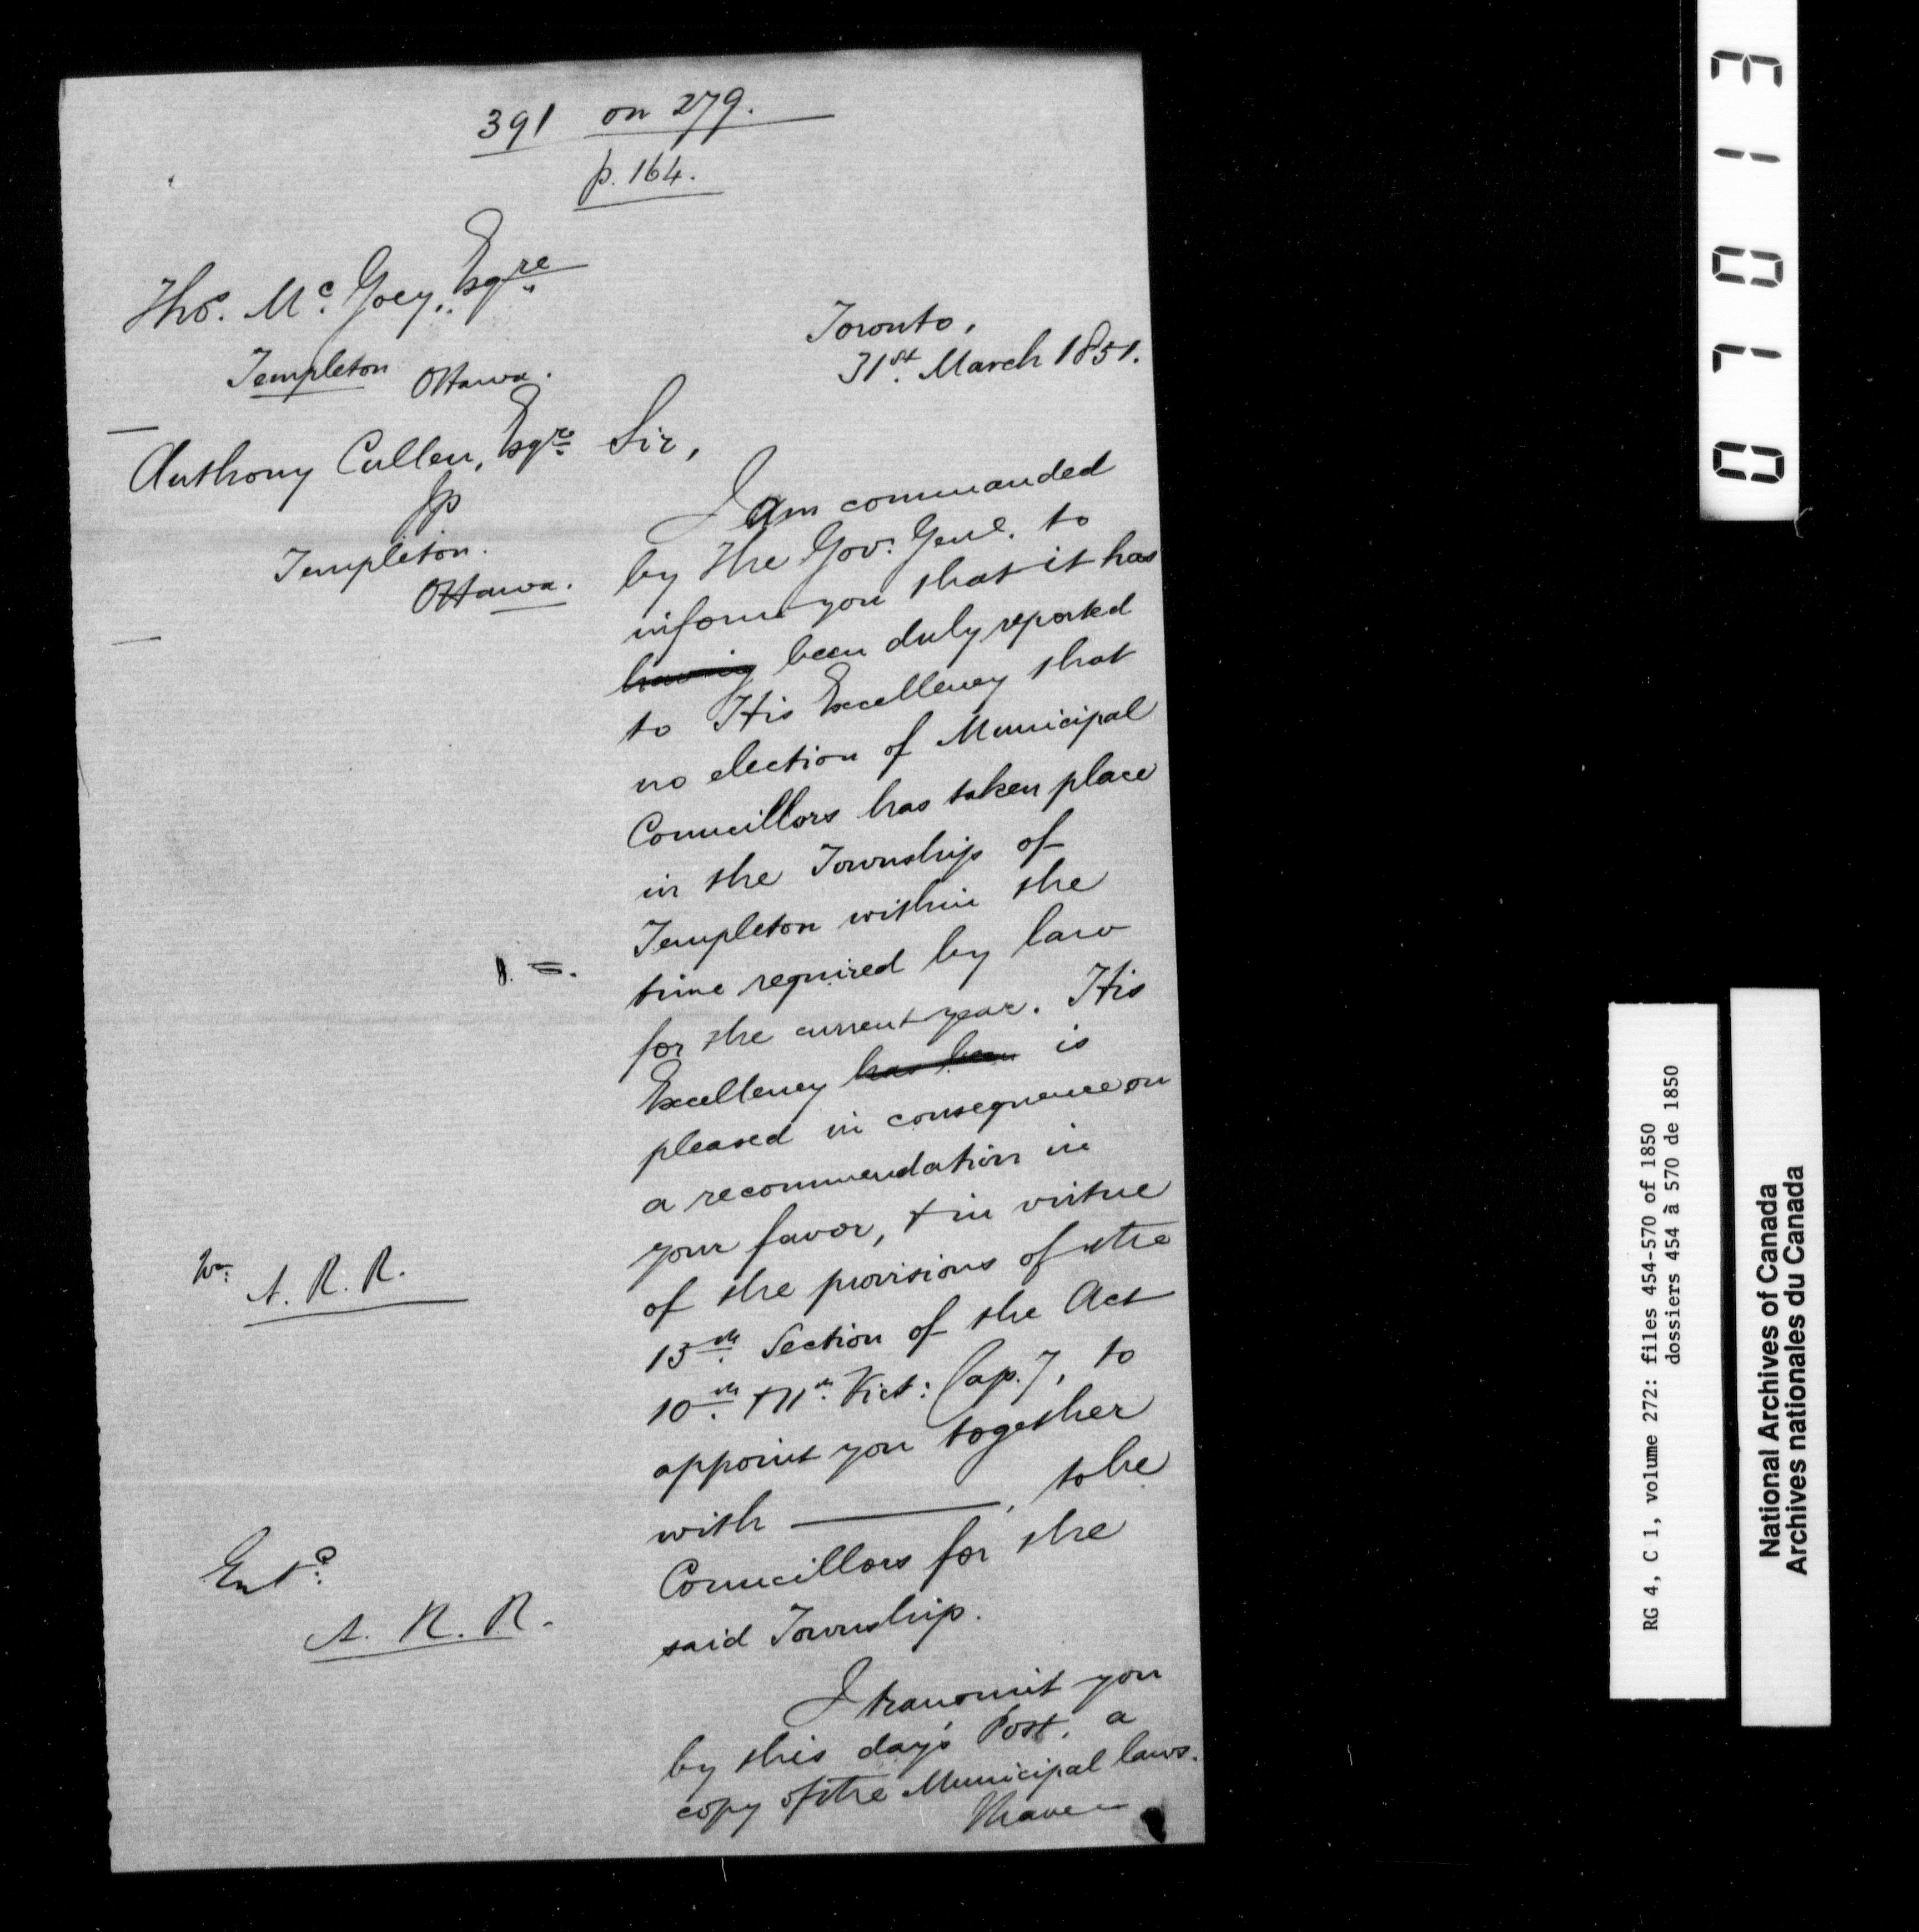 391 on 279.
p. 164.
Thos. Mc. Goey, Esqre
Templeton Ottawa.
Toronto,
31st. March 1851.
Anthony Cullen, Esqre
JP
Templeton.
Ottawa.
Sir,
I am commanded
by the Gov. Genl. to
inform you that it has
having been duly reported
to His Excellency that
no election of Municipal
Councillors has taken place
in the Township of
Templeton within the
time required by law
for the current year. His
Excellency has been is
pleased in consequence on
a recommendation in
your favor, + in virtue
of the provisions of the
13th. Section of the Act
10th. + 11th. Vict: Cap. 7, to
appoint you together
with ———, to be
Councillors for the
said Township.
I transmit you
by this day's Post, a
copy of the Municipal laws.
I have
A. R. R.
Entd:
A. R. R.
071013
RG 4, C 1, volume 272: files 454-570 of 1850
dossiers 454 à 570 de 1850
National Archives of Canada
Archives nationales du Canada